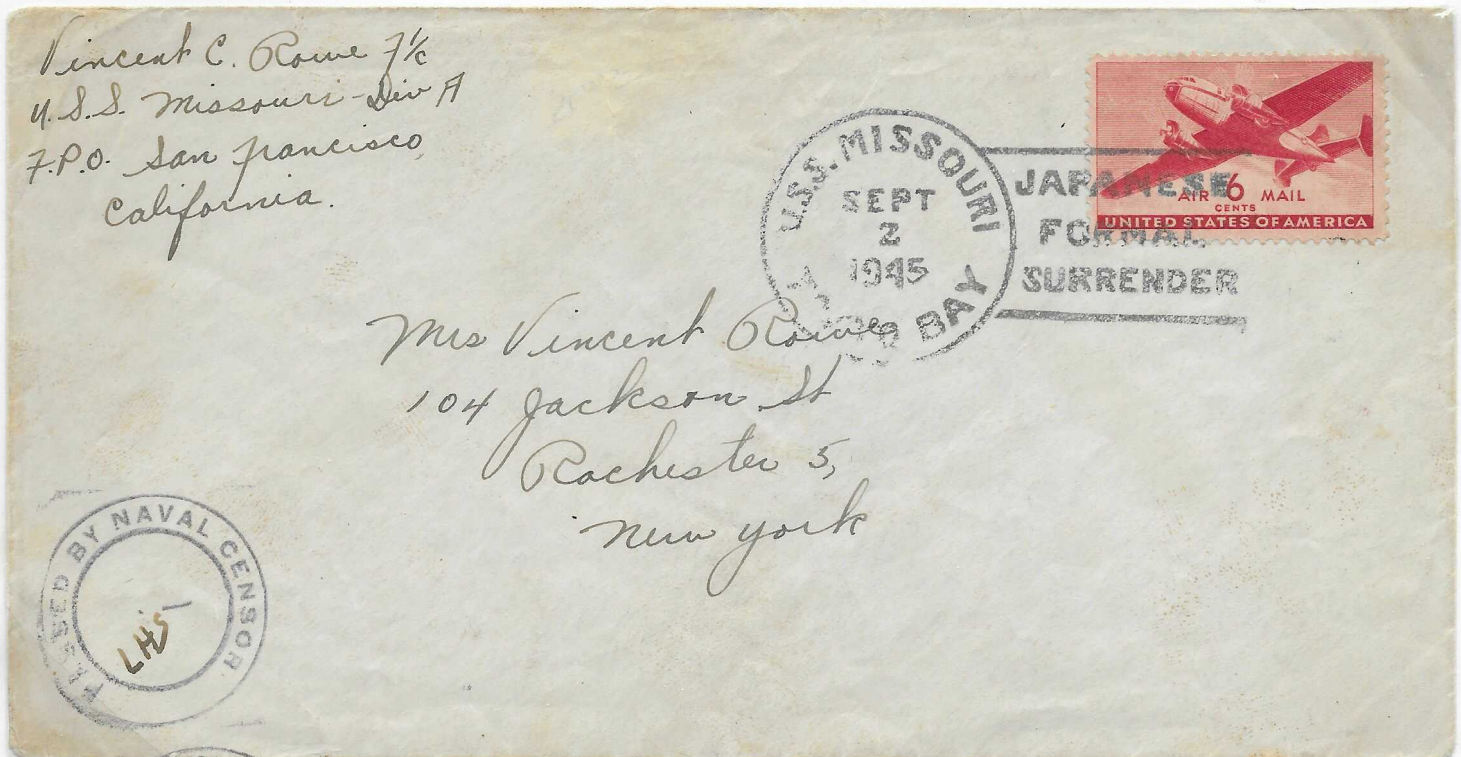 Vincent C. Rowe F 1/c
U.S.S. Missouri - Div A
F.P.O. San Francisco,
California.
U.S.S. MISSOURI
SEPT
2
1945
TOKYO BAY
JAPANESE
FORMAL
SURRENDER
AIR 6 MAIL
CENTS
UNITED STATES OF AMERICA
Mrs Vincent Rowe
104 Jackson St
Rochester 5,
New York
PASSED BY NAVAL CENSOR
LHS